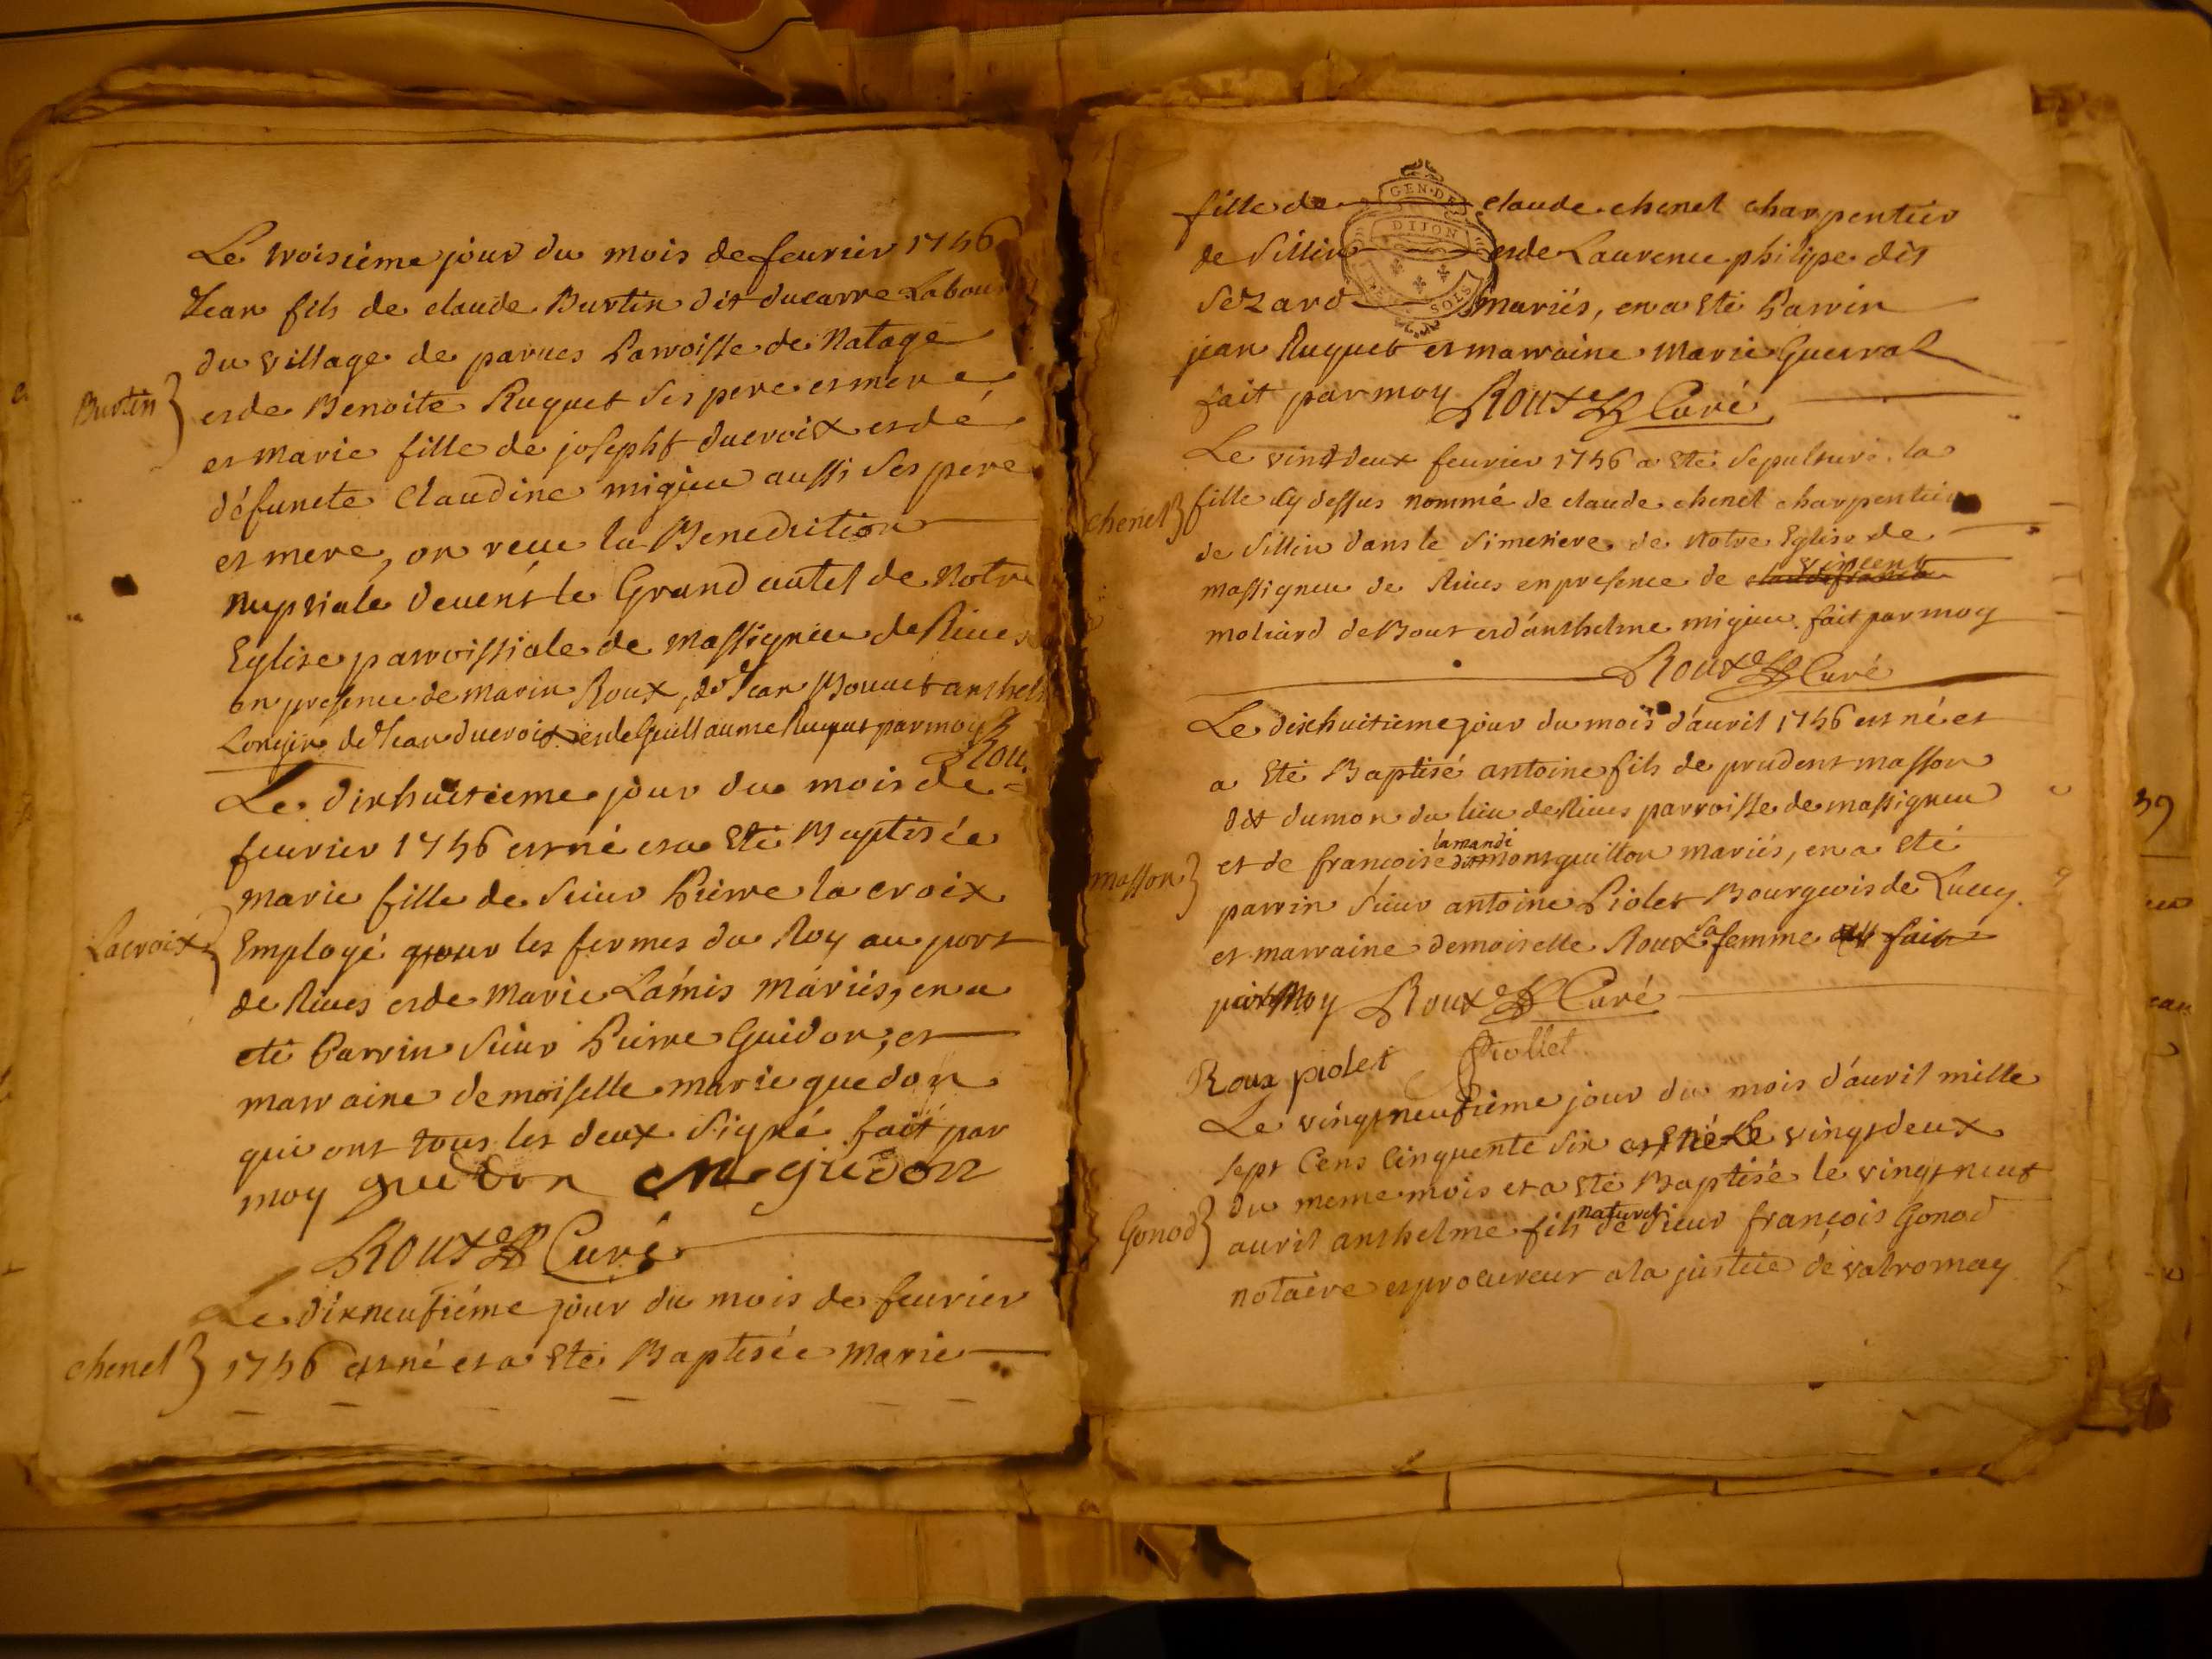 Le troisième jour du mois de feurier 1756
Jean fils de claude Burtin dit ducarre Labou
du village de parues Parroisse de Natage
Burtin} et de Benoite Ruguet ses pere et mere
et marie fille de josepht ducroix et dé
défuncte Claudine migieu aussi ses pere
et mere, on reçu la Benediction
nuptiale devent le Grand autel de Notre
Eglise parroissiale de massignieu de Riues
en presence de marin Roux, de Jean Bouuet anthel
Longin de Jean ducroix et de Guillaume Ruguet par moy
Rou
Le dixhuitieme jour du mois de
feurier 1756 est né et a Eté Baptisée
marie fille de sieur Pierre la croix
Lacroix} Employé pour les fermes du Roy au port
de Riues et de Marie Lámis máriés, en a
eté Parrin sieur Pierre Guidon, et
marraine demoiselle marie guedon
qui ont tous les deux signé fait par
moy guedon M guedon
Roux Curé
Le dixneufiéme jour du mois de feurier
chenel} 1756 est né et a Eté Baptisée Marie
GEN. DE
DIJON
SOLS
fille de claude chenel charpentier
de Sillin et de Laurence philipe dit
Sezard mariés, en a Eté Parrin
jean Ruguet et marraine Marie Guerral
fait par moy Roux Curé
Le vint deux feurier 1756 a Eté Sepulturé la
chenel} fille cy dessus nommé de claude chenel charpentier
de Sillin dans le Simetiere de Notre Eglise de
vincent
massigneu de Riues en presence de
moliard de Bout et d'anthelme migieu fait par moy
Roux Curé
Le dixhuitieme jour du mois d'auril 1756 est né et
a Eté Baptisé antoine fils de prudent masson
dit dumon du lieu de Riues parroisse de massigneu
lamandé
masson} et de francoise dit montguillon mariés, en a Eté
parrin sieur antoine Piolet Bourgeois de Lucey
et marraine demoiselle Roux sa femme fait
par Moy Roux Curé
Roux piolet Piollet
Le vingtneufiéme jour du mois d'auril mille
sept Cens Cinquente six est né Le vingtdeux
du meme mois et a eté Baptisé le vingt neuf
naturel
Gonod} auril anthelme fils de sieur françois Gonod
notaire et procureur a la justice de valromey
39